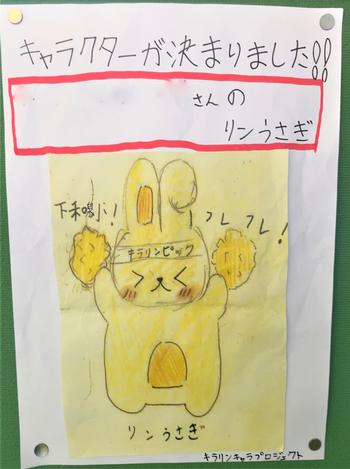 キャラクターが決まりました!!
さんの
リンうさぎ
フレフレ!
キラリンピック
リンうさぎ
キラリンキャラプロジェクト